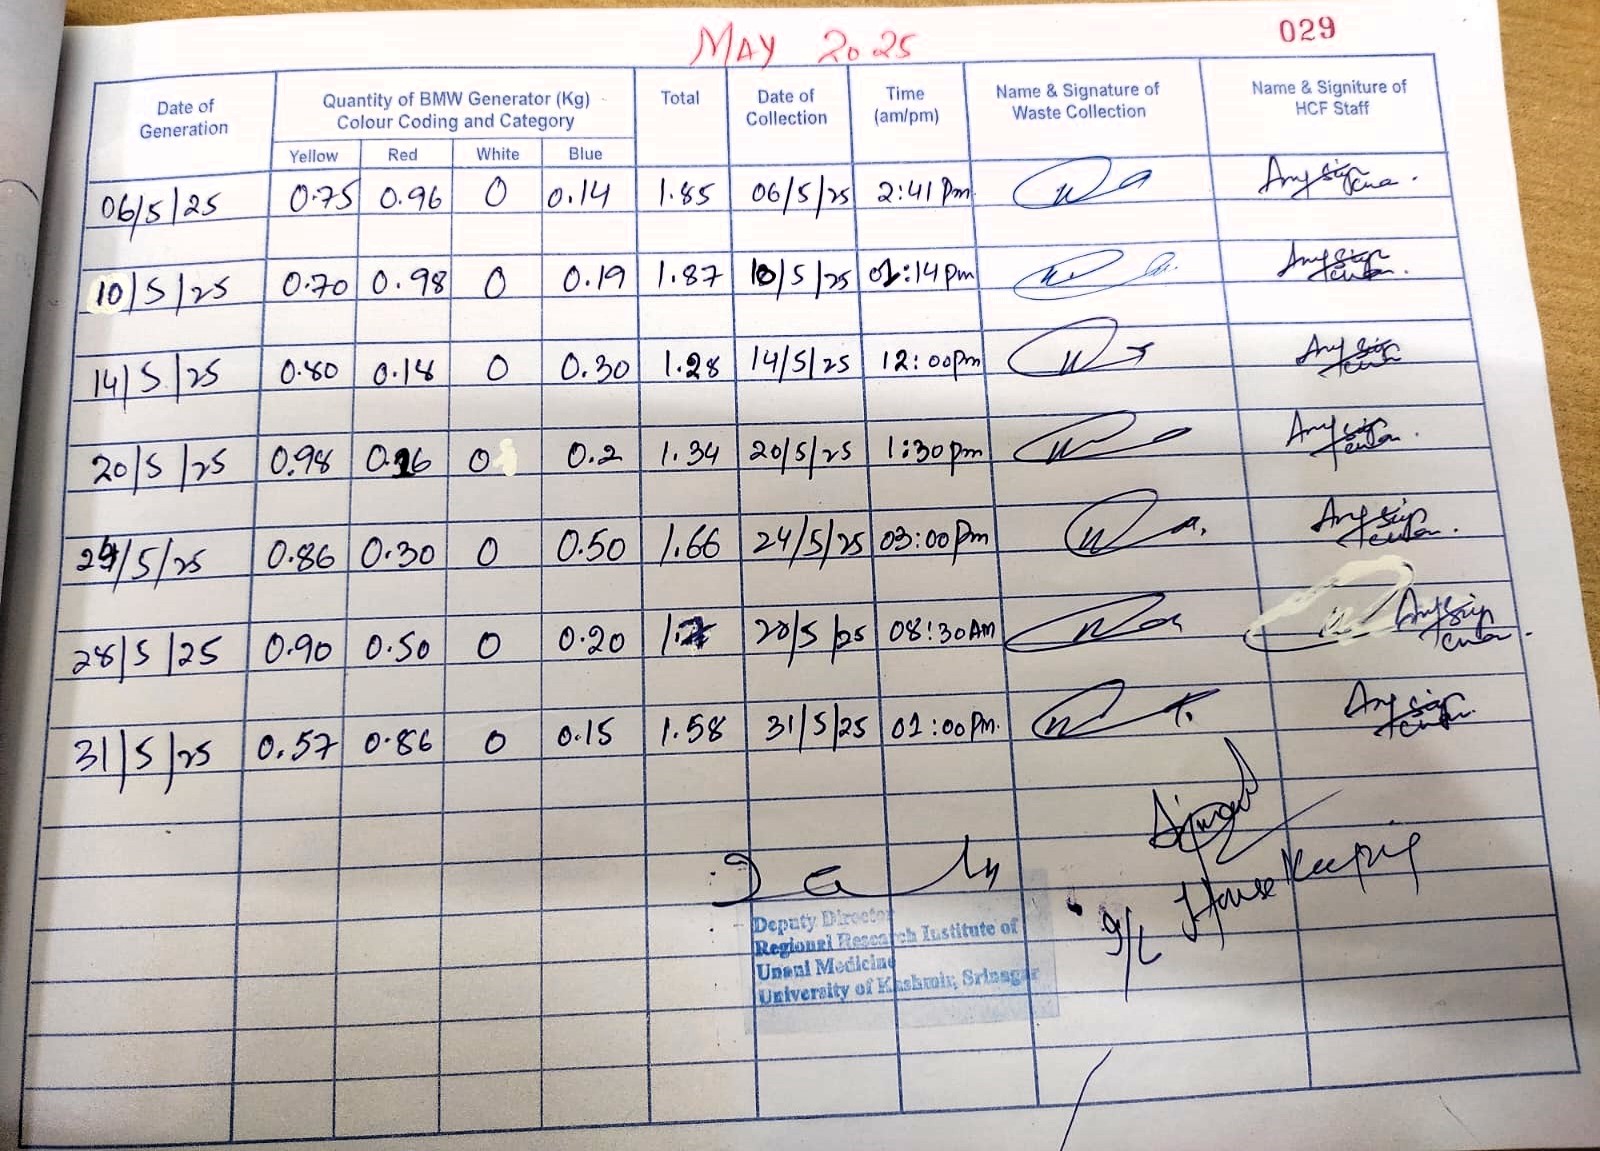 MAY 2025
029
Date of Generation Quantity of BMW Generator (Kg) Colour Coding and Category Total Date of Collection Time (am/pm) Name & Signature of Waste Collection Name & Signiture of HCF Staff
Yellow Red White Blue
06/5/25 0.75 0.96 0 0.14 1.85 06/5/25 2:41 Pm
10/5/25 0.70 0.98 0 0.19 1.87 10/5/25 02:14 pm
14/5/25 0.80 0.18 0 0.30 1.28 14/5/25 12:00pm
20/5/25 0.98 0.16 0 0.2 1.34 20/5/25 1:30 pm
24/5/25 0.86 0.30 0 0.50 1.66 24/5/25 03:00 Pm
28/5/25 0.90 0.50 0 0.20 /5/25 08:30 AM
31/5/25 0.57 0.86 0 0.15 1.58 31/5/25 01:00 Pm.
Deputy Director
Regional Research Institute of
Unani Medicine
University of Kashmir, Srinagar
I/C House Keeping